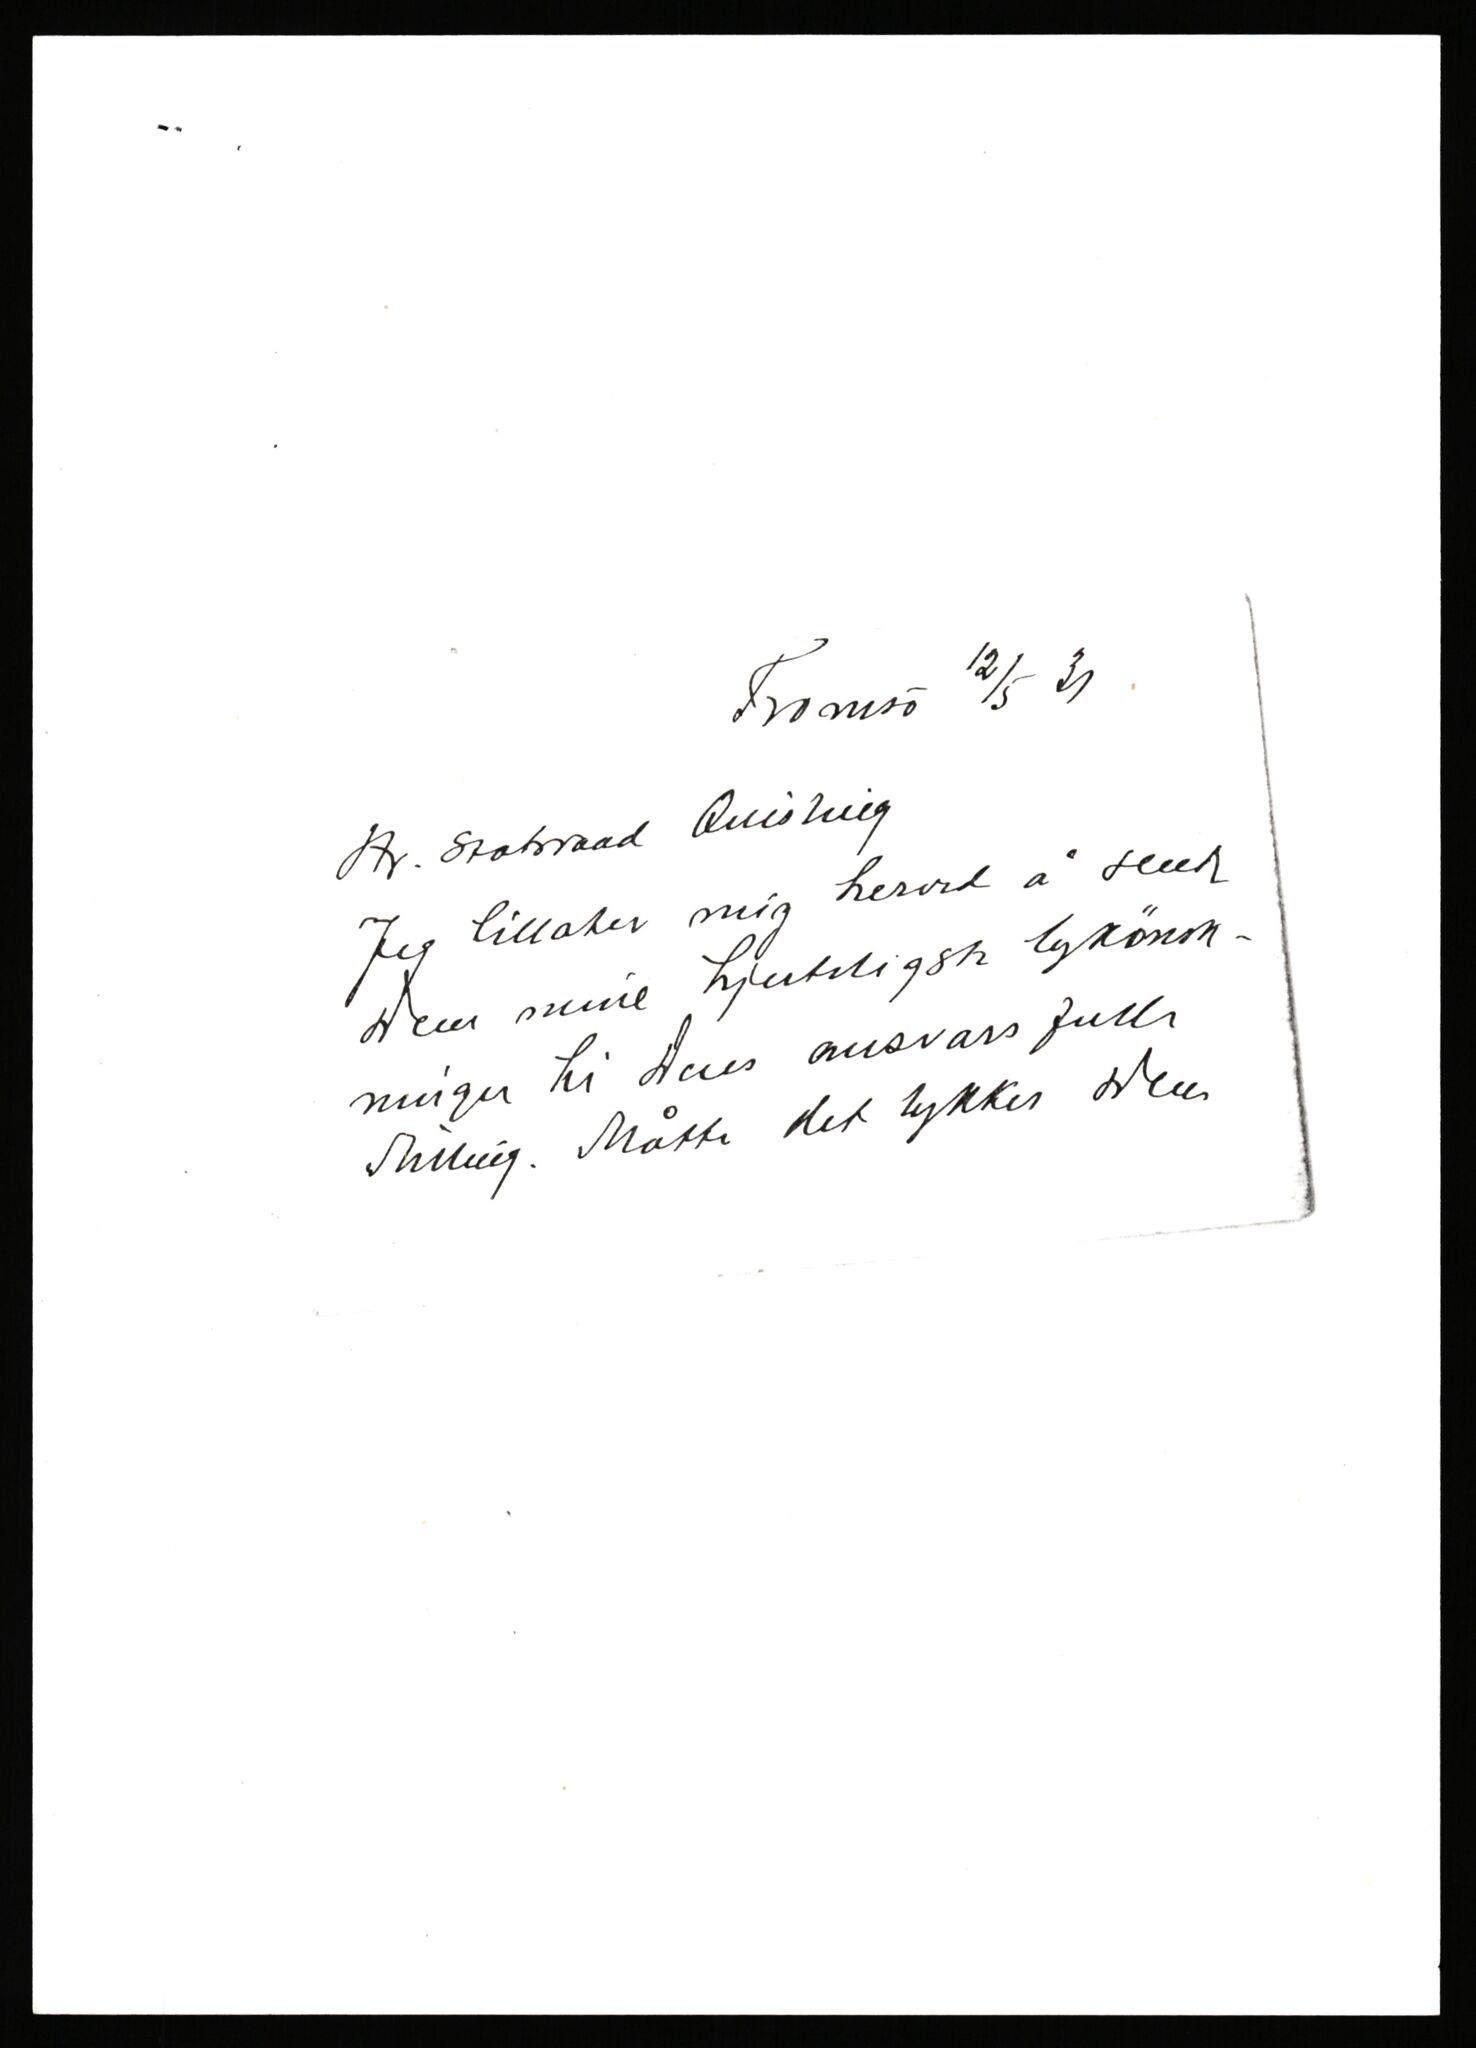 Tromsö 12/5 31
Hr. Statsraad Quisling
Jeg tillater mig herved å sende
Dem mine hjerteligste lykönsk-
ninger til Deres ansvarsfulle
Stilling. Måtte det lykkes Dem